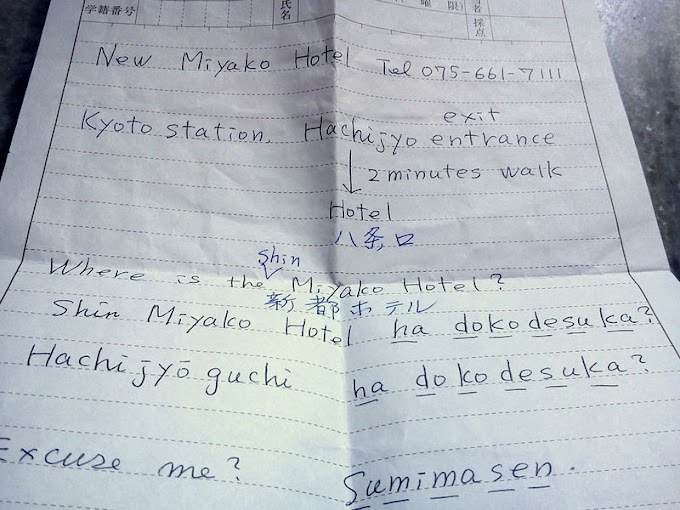 学籍番号 氏名 曜 限) 者 採点
New Miyako Hotel Tel 075-661-7111
exit
Kyoto station, Hachijyo entrance
↓ 2 minutes walk
Hotel
八条口
shin
Where is the Miyako Hotel?
新都ホテル
Shin Miyako Hotel ha doko desuka?
Hachijyō guchi ha doko desuka?
Excuse me? Sumimasen.